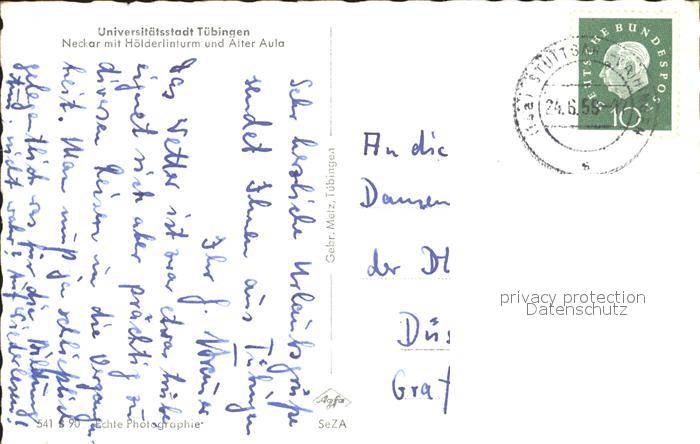 Universitätsstadt Tübingen
Neckar mit Hölderlinturm und Alter Aula
Sehr herzliche Urlaubsgrüße
sendet Ihnen aus Tübingen
Ihr J.
Das Wetter ist zwar etwas trübe
eignet sich aber prächtig zu
diversen Reisen in die Vergangen-
heit. Man muß ja schließlich
gelegentlich was für die Bildung
tun nicht wahr? Auf Wiedersehen!
Gebr. Metz, Tübingen
541 S 90 Echte Photographie
Agfa
SeZA
DEUTSCHE BUNDESPOST
10
STUTTGART
24.6.59
An die
Damen
der D
Düs
Graf
privacy protection
Datenschutz